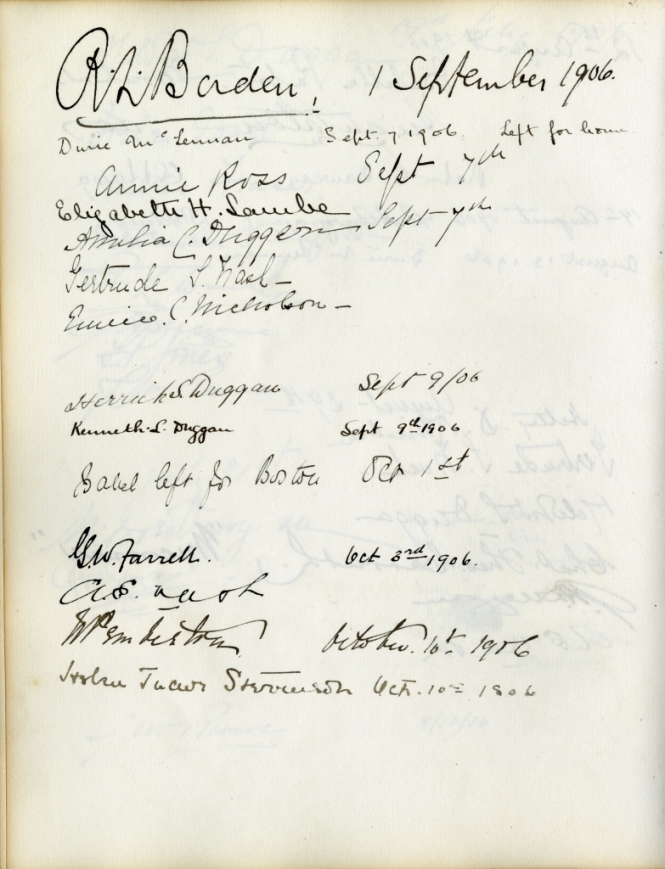 R. L. Borden, 1 September 1906.
McLennan Sept. 7 1906 Left for home
Annie Ross Sept 7th
Elizabeth H. Lambe
Amelia C. Duggan Sept 7th
Gertrude L. Nash –
Eunice. C. Nicholson –
Herrick S. Duggan Sept 9/06
Kenneth L. Duggan Sept 9th 1906
Isabel left for Boston Oct 1st
G.W. Farrell. Oct 3rd 1906.
A.E. Nash
October. 10th 1906
Stevenson Oct. 10th 1906